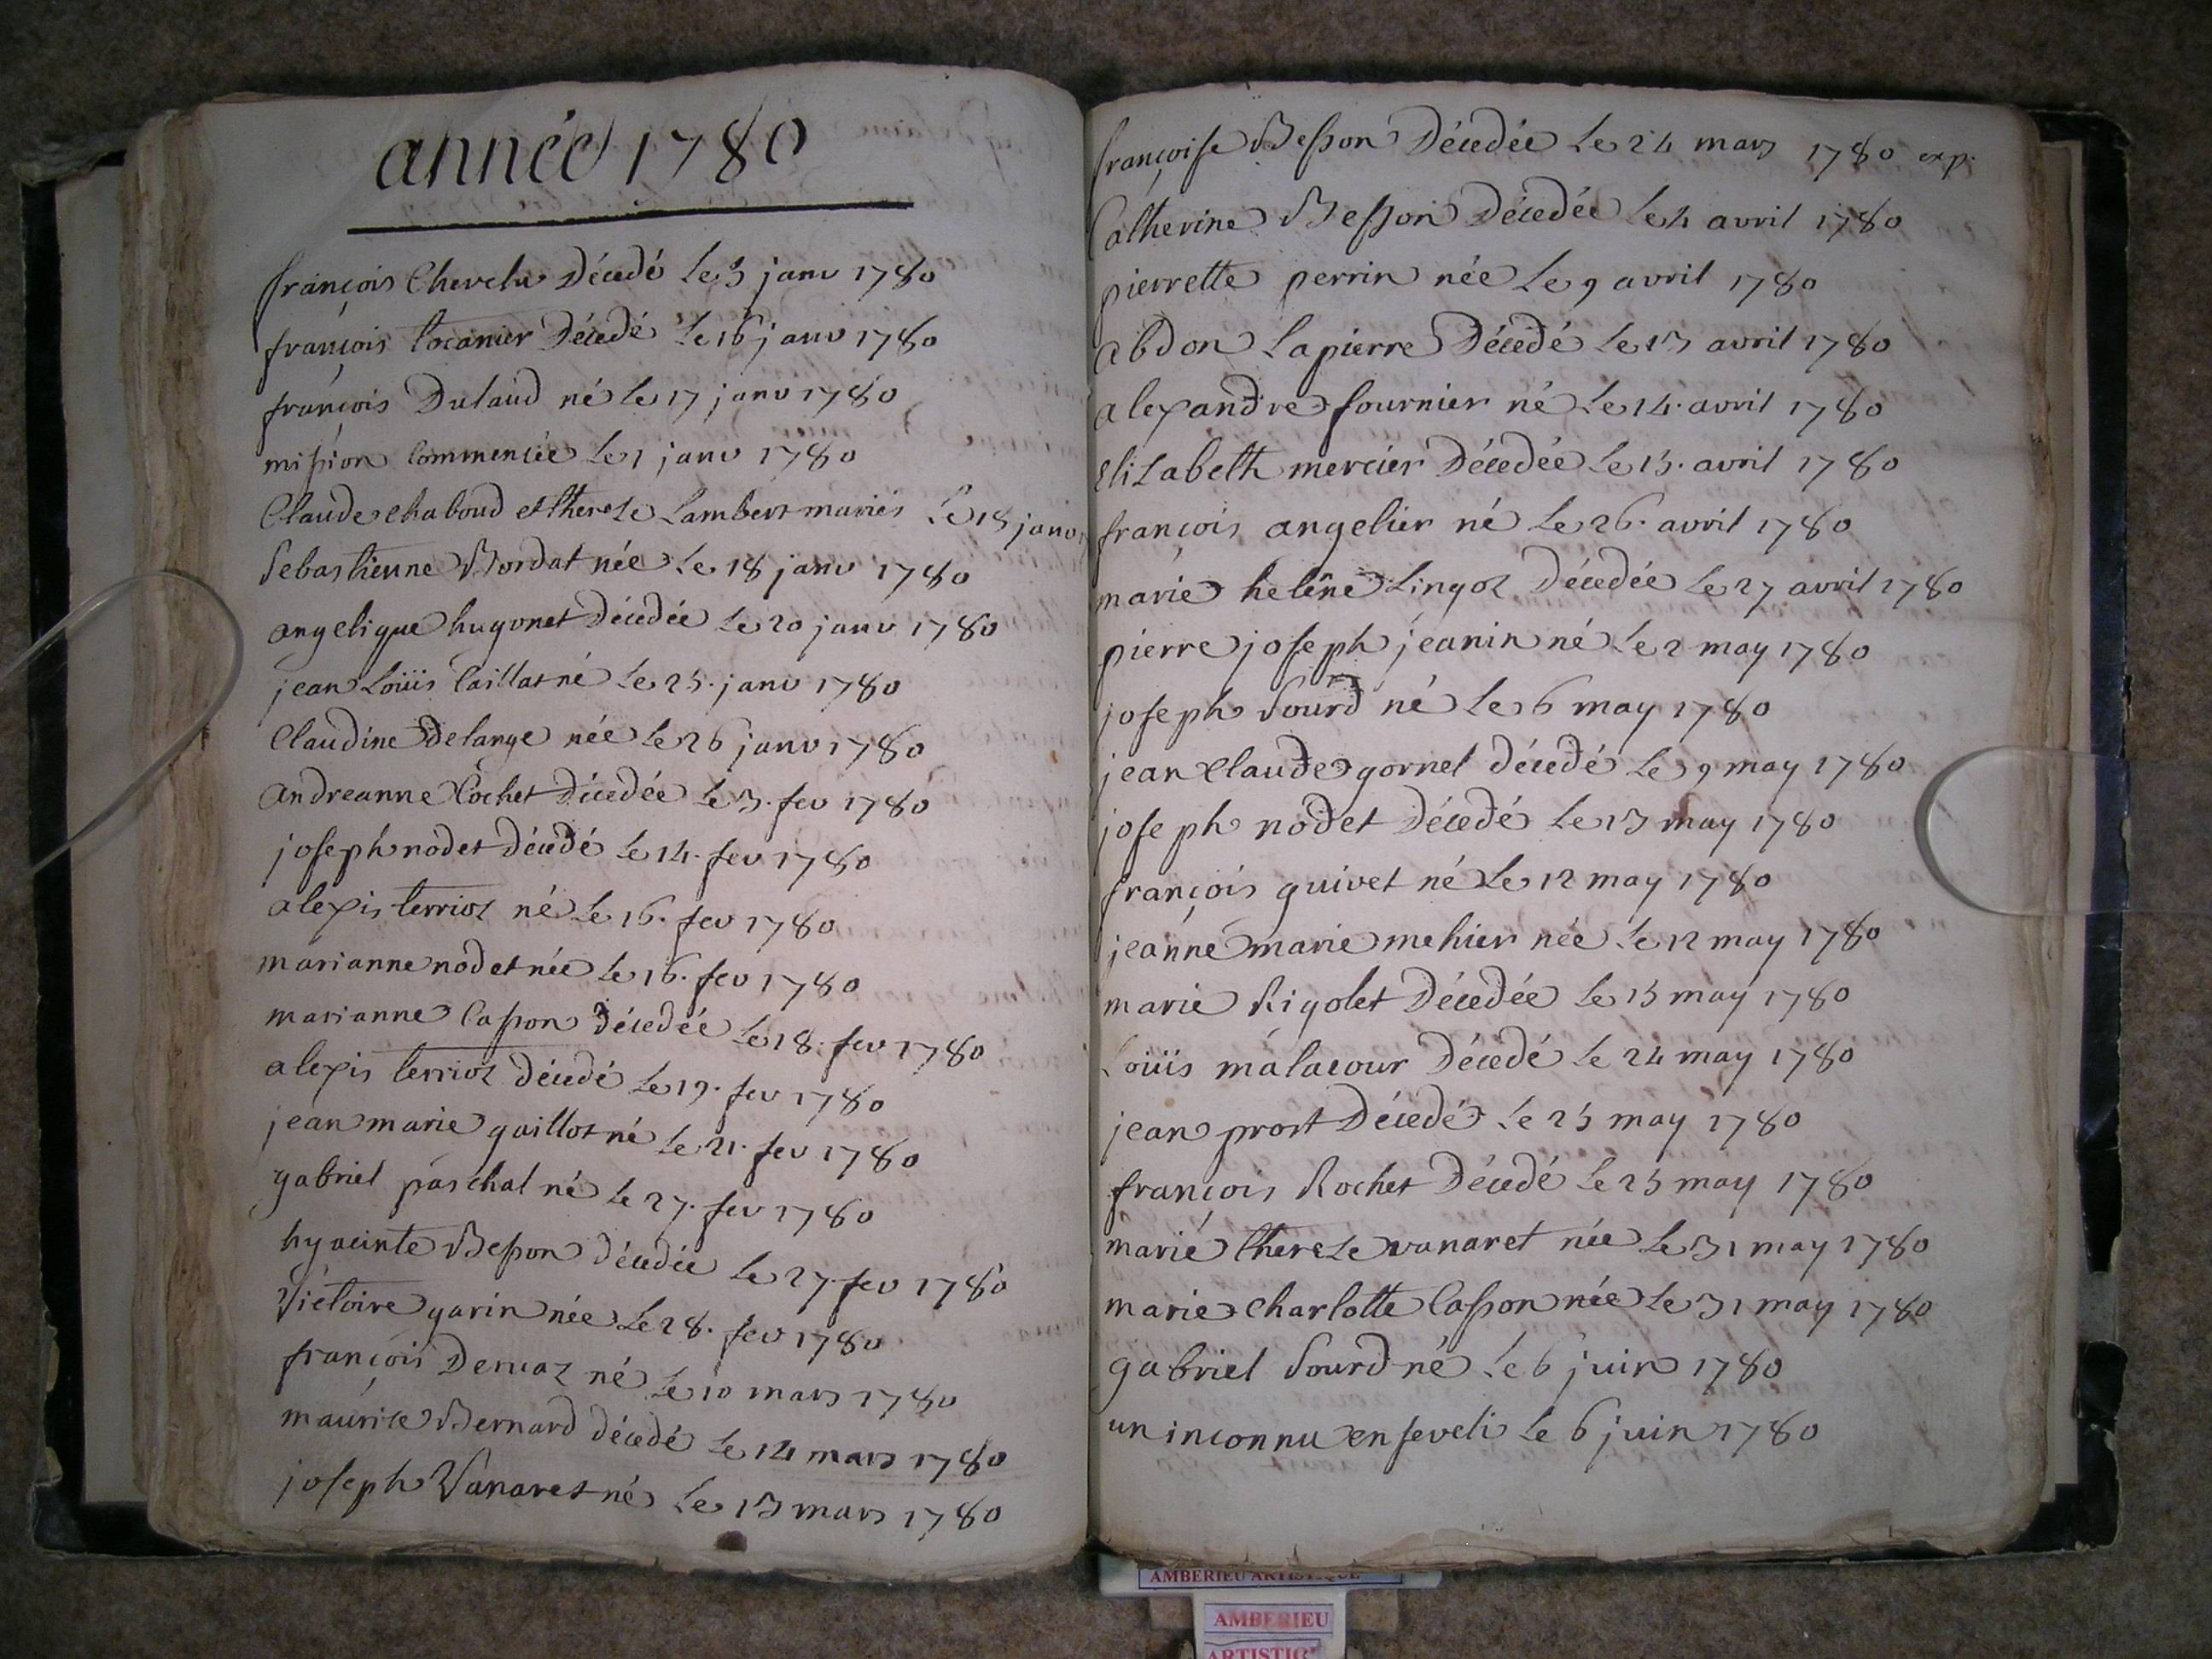 année 1780
françois Chevelu Décedé Le 3 janv 1780
françois tocanier Décedé Le 16 janv 1780
françois Dutaud né Le 17 janv 1780
mission Commencée Le 1 janv 1780
Claude chaboud et thereze Lambert mariés Le 18 janv
Sebastienne Bordat née Le 18 janv 1780
angelique hugonet Décedée Le 20 janv 1780
jean Loüis Caillat né Le 25. janv 1780
Claudine delange née Le 26 janv 1780
andreanne Cochet Décedée Le 3. fev 1780
joseph nodet Décedé Le 14. fev 1780
alexis terrioz né Le 16. fev 1780
marianne nodet née Le 16. fev 1780
marianne Casson décedée Le 18. fev 1780
alexis terrioz décedé Le 19. fev 1780
jean marie guillot né Le 21. fev 1780
gabriel paschal né Le 27. fev 1780
hyacinte Besson décedée Le 27 fev 1780
Victoire garin née Le 28. fev 1780
françois Dervaz né Le 10 mars 1780
maurice Bernard décedé Le 14 mars 1780
joseph Vanaret né Le 13 mars 1780
françoise Besson Décedée Le 24 mars 1780 exp.
Catherine Besson Décedée Le 4 avril 1780
pierrette perrin née Le 9 avril 1780
abdon Lapierre Décedé Le 13 avril 1780
alexandre fournier né Le 14. avril 1780
elizabeth mercier Décedée Le 15. avril 1780
françois angelier né Le 26. avril 1780
marie helêne Lingoz Décedée Le 27 avril 1780
pierre joseph jeanin né Le 2 may 1780
joseph Sourd né Le 6 may 1780
jean Claude gornel décedé Le 9 may 1780
joseph nodet Décedé Le 13 may 1780
françois guivet né Le 12 may 1780
jeanne marie mehier née Le 12 may 1780
marie Rigolet Décedée Le 15 may 1780
Loüis malacour Décedé Le 24 may 1780
jean prost Décedé Le 25 may 1780
françois Rochet Décedé Le 25 may 1780
marie thereze vanaret née Le 31 may 1780
marie charlotte Casson née Le 31 may 1780
gabriel Sourd né Le 6 juin 1780
un inconnu enseveli Le 6 juin 1780
AMBERIEU ARTISTIQUE
AMBERIEU